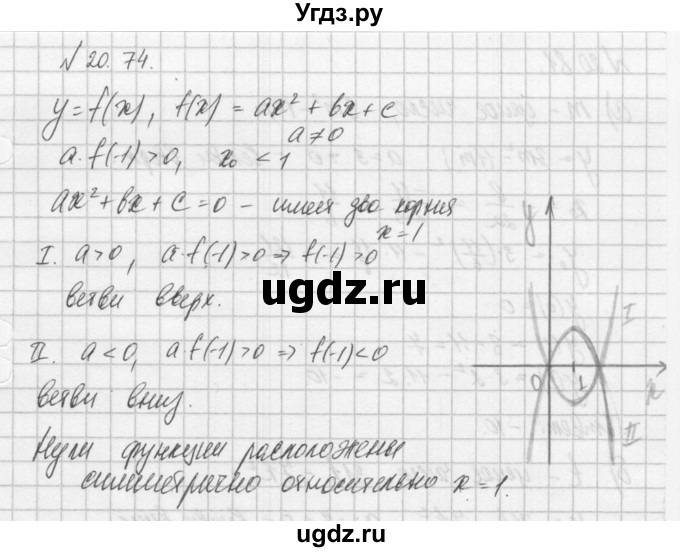 Угдз.ру
№ 20.74.
y=f(x), f(x) = ax² + bx + c
a≠0
a·f(-1)>0, x₀ < 1
ax² + bx + c = 0 – имея два корня
x=1
I. a>0, a·f(-1)>0 ⇒ f(-1)>0
ветви вверх.
II. a<0, a f(-1)>0 ⇒ f(-1)<0
ветви вниз.
Нули функции расположены
симметрично относительно x=1.
y
I
0
1
x
II
ugdz.ru
ugdz.ru
ugdz.ru